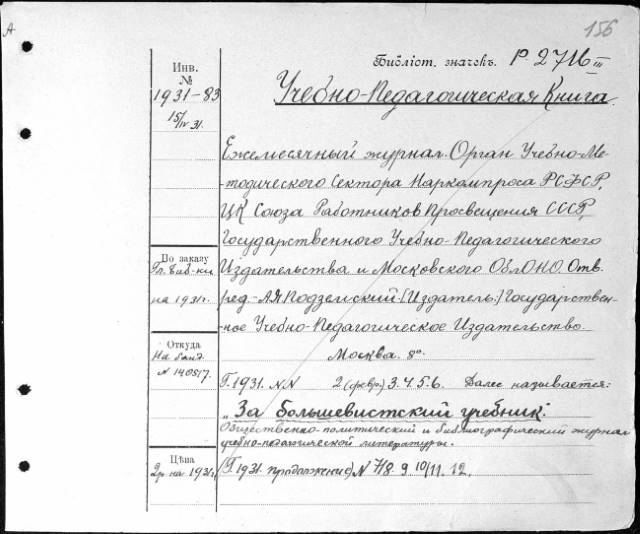 А
156
Библіот. значекъ. Р 2716 III
Инв.
№
1931-83
15/IV 31.
Учебно-Педагогическая Книга.
Ежемесячный журнал. Орган Учебно-Ме-
тодического Сектора Наркомпроса РСФСР,
ЦК Союза Работников Просвещения СССР,
Государственного Учебно-Педагогического
Издательства и Московского ОблОНО. Отв.
ред. - А.Я. Подземский. [Издатель:] Государствен-
ное Учебно-Педагогическое Издательство.
Москва. 8°.
По заказу
Гл. Биб-ки
на 1931 г.
Откуда
На банд.
N 140817.
Г. 1931. N.N 2 (февр.) 3. 4. 5. 6. Далее называется:
"За большевистский учебник".
Общественно-политический и библиографический журнал
учебно-педагогической литературы.
Цѣна
2 р. на 1931 г.
(Г. 1931. продолжение) N 7/8. 9. 10/11. 12.